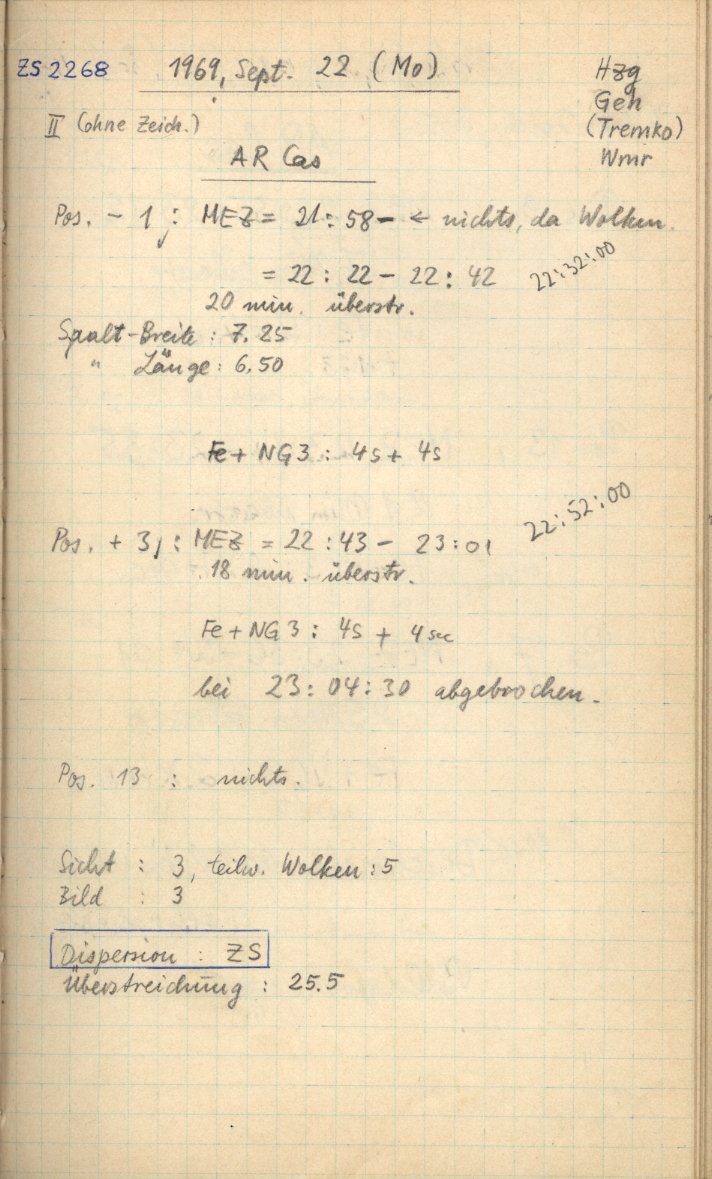 ZS 2268 1969, Sept. 22 (Mo) Hzg
Geh
II (ohne Zeich.) (Tremko)
AR Cas Wmr
Pos. - 1, : MEZ = 21 : 58 - ← nichts, da Wolken.
= 22 : 22 - 22 : 42 22:32:00
20 min. überstr.
Spalt-Breite : 7.25
" Länge : 6.50
Fe + NG3 : 4s + 4s
Pos. + 3, : MEZ = 22 : 43 - 23 : 01 22:52:00
18 min. überstr.
Fe + NG3 : 4s + 4 sec
bei 23 : 04 : 30 abgebrochen.
Pos. 13 : nichts.
Sicht : 3, teilw. Wolken : 5
Bild : 3
Dispersion : ZS
Überstreichung : 25.5